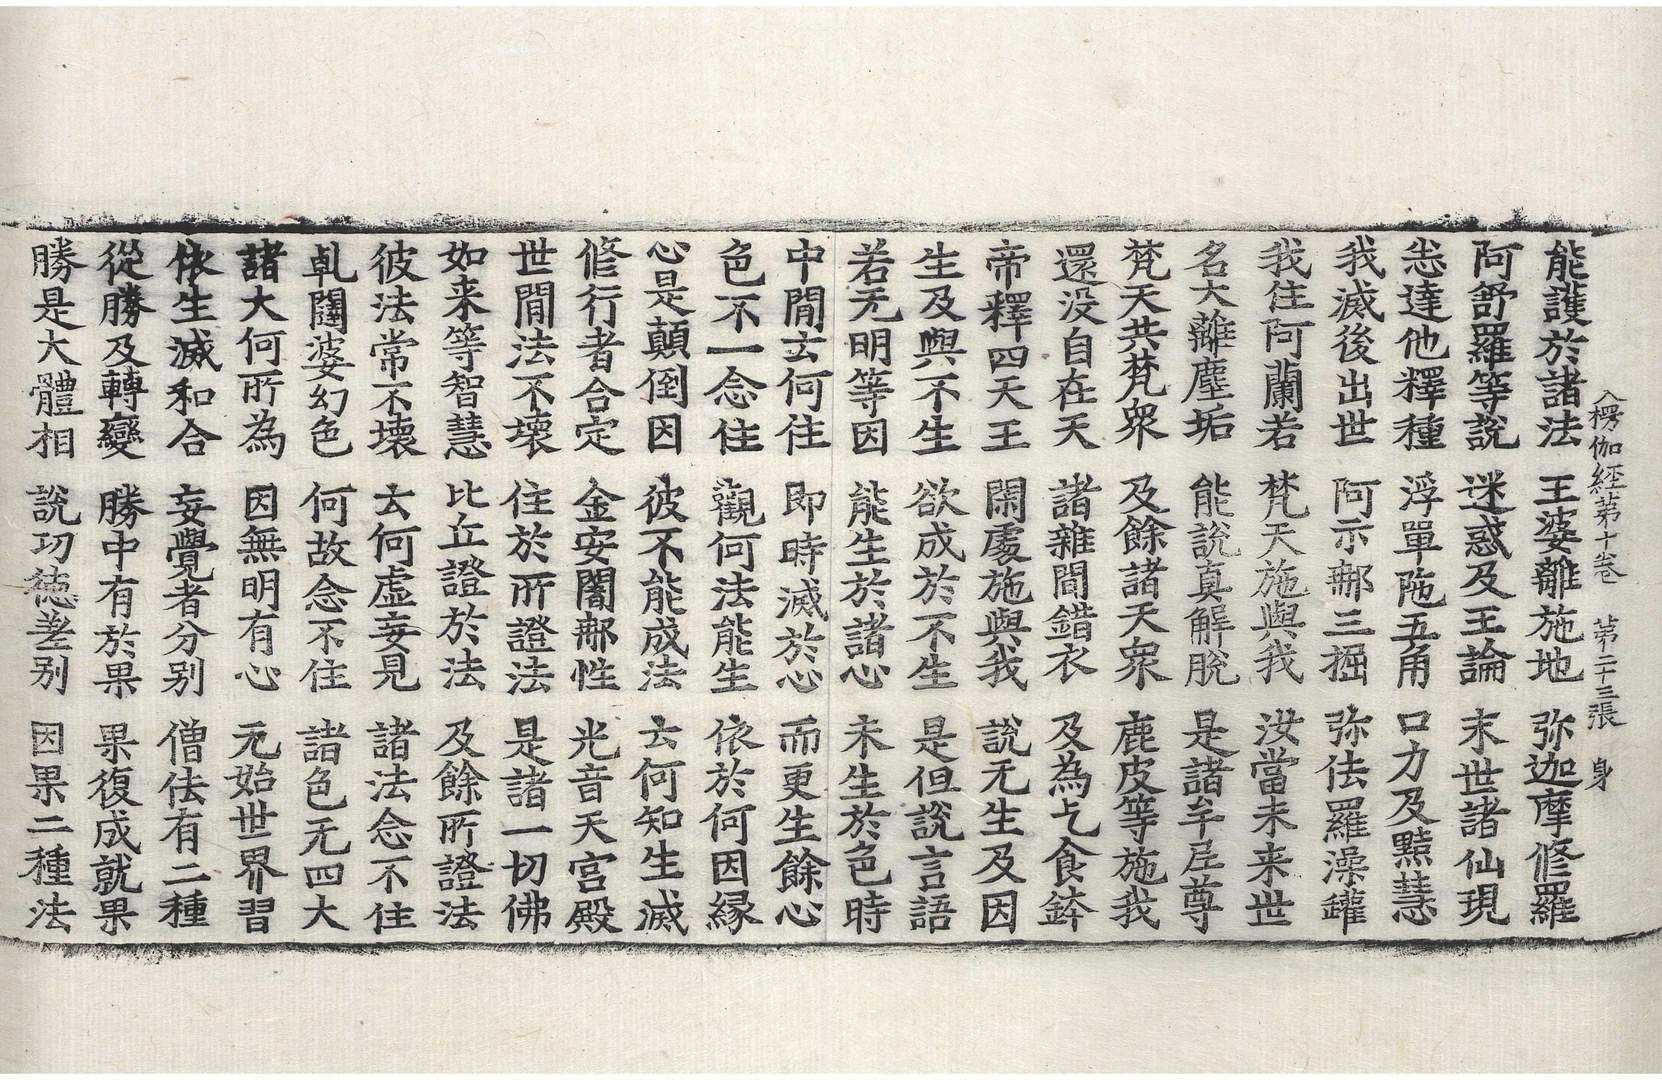 入楞伽經第十卷 第二十三張 身
能護於諸法 王婆離施地 弥迦摩修羅
阿舒羅等說 迷惑及王論 末世諸仙現
悉達他釋種 浮單陁五角 口力及黠慧
我滅後出世 阿示那三掘 弥佉羅澡罐
我住阿蘭若 梵天施與我 汝當未来世
名大離塵垢 能說真解脫 是諸牟尼尊
梵天共梵衆 及餘諸天衆 鹿皮等施我
還没自在天 諸雜間錯衣 及為乞食鉢
帝釋四天王 閑處施與我 說无生及因
生及與不生 欲成於不生 是但說言語
若无明等因 能生於諸心 未生於色時
中間云何住 即時滅於心 而更生餘心
色不一念住 觀何法能生 依於何因縁
心是顛倒因 彼不能成法 云何知生滅
修行者合定 金安闍那性 光音天宮殿
世間法不壞 住於所證法 是諸一切佛
如来等智慧 比丘證於法 及餘所證法
彼法常不壞 云何虛妄見 諸法念不住
乹闥婆幻色 何故念不住 諸色无四大
諸大何所為 因無明有心 无始世界習
依生滅和合 妄覺者分別 僧佉有二種
從勝及轉變 勝中有於果 果復成就果
勝是大體相 說功德差別 因果二種法